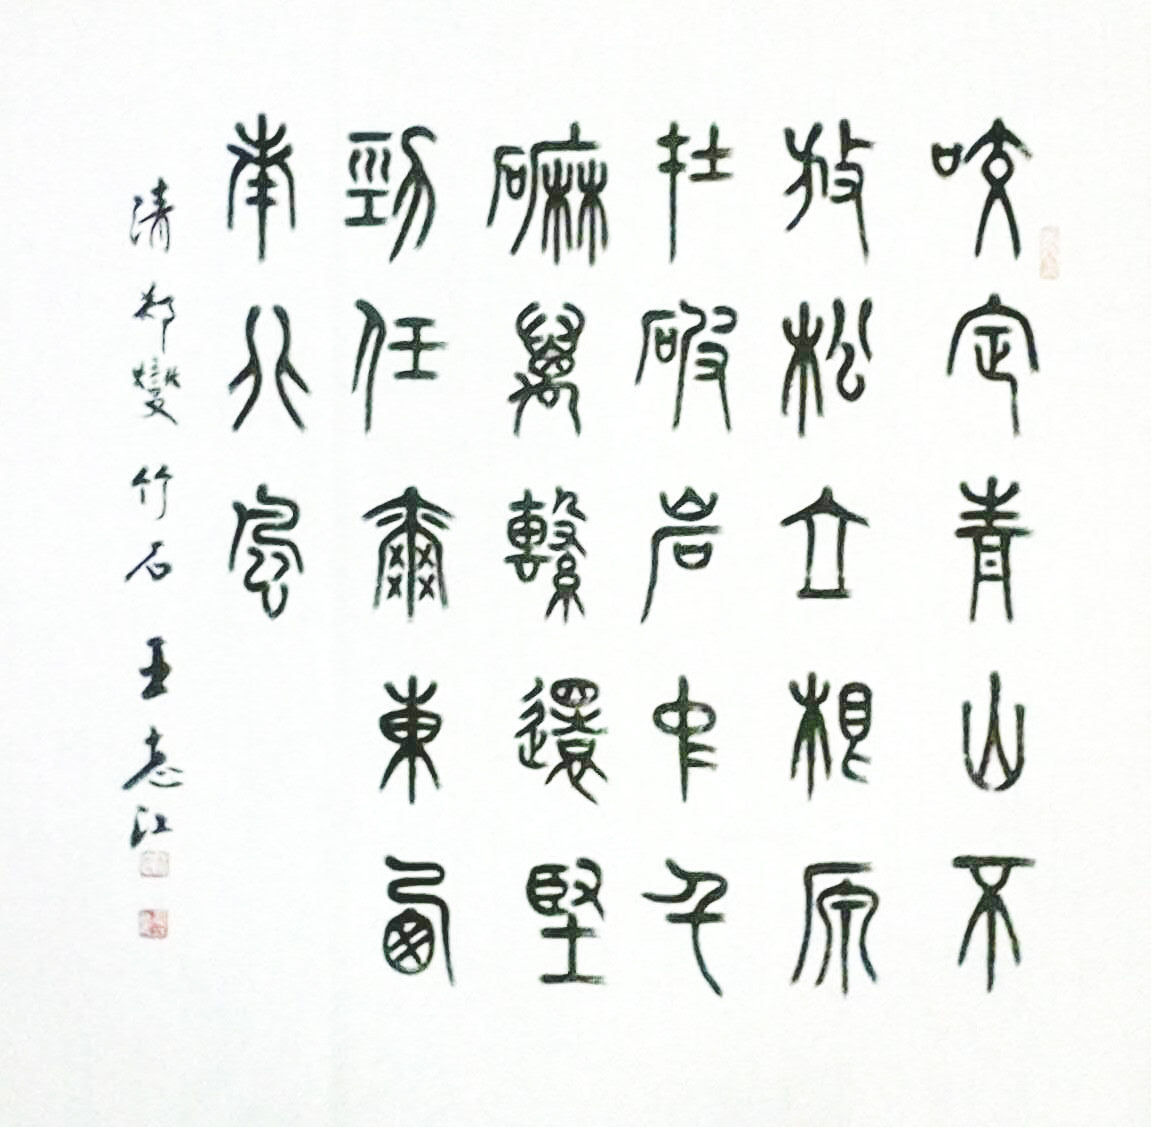 咬定青山不
放松立根原
在破岩中千
磨萬繫還堅
勁任爾東西
南北風
清郑燮竹石王江